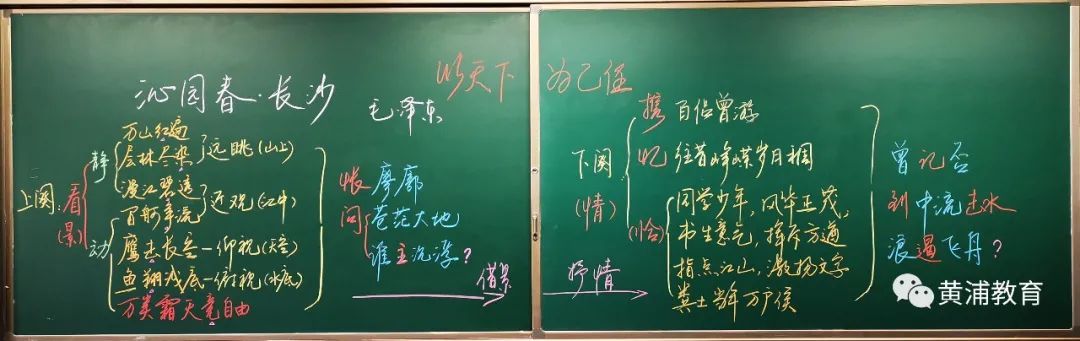 沁园春·长沙
毛泽东
以天下
为己任
上阕:看(景)
静
万山红遍
层林尽染
远眺(山上)
漫江碧透
百舸争流
近观(江中)
动
鹰击长空—仰视(天空)
鱼翔浅底—俯视(水底)
万类霜天竞自由
怅
问
寥廓
苍茫大地
谁主沉浮?
借景
抒情
下阕
(情)
携
百侣曾游
忆
往昔峥嵘岁月稠
(恰)
同学少年,风华正茂,
书生意气,挥斥方遒
指点江山,激扬文字
粪土当年万户侯
曾记否
到中流击水
浪遏飞舟?
黄浦教育